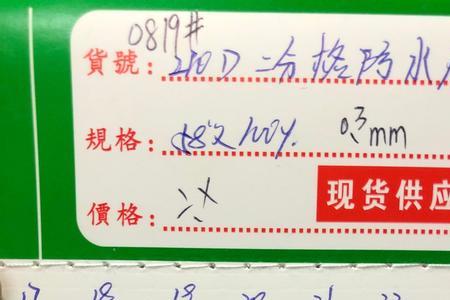 0819#
貨號: 210D 二分格防水
規格: 58"X100Y. 0.3mm
價格:
现货供应
18 19